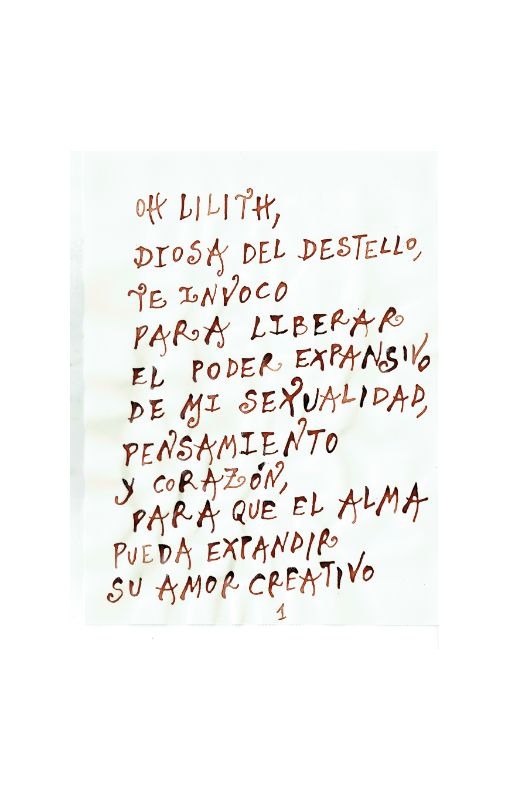 OH LILITH,
DIOSA DEL DESTELLO,
TE INVOCO
PARA LIBERAR
EL PODER EXPANSIVO
DE MI SEXUALIDAD,
PENSAMIENTO
Y CORAZÓN,
PARA QUE EL ALMA
PUEDA EXPANDIR
SU AMOR CREATIVO
1